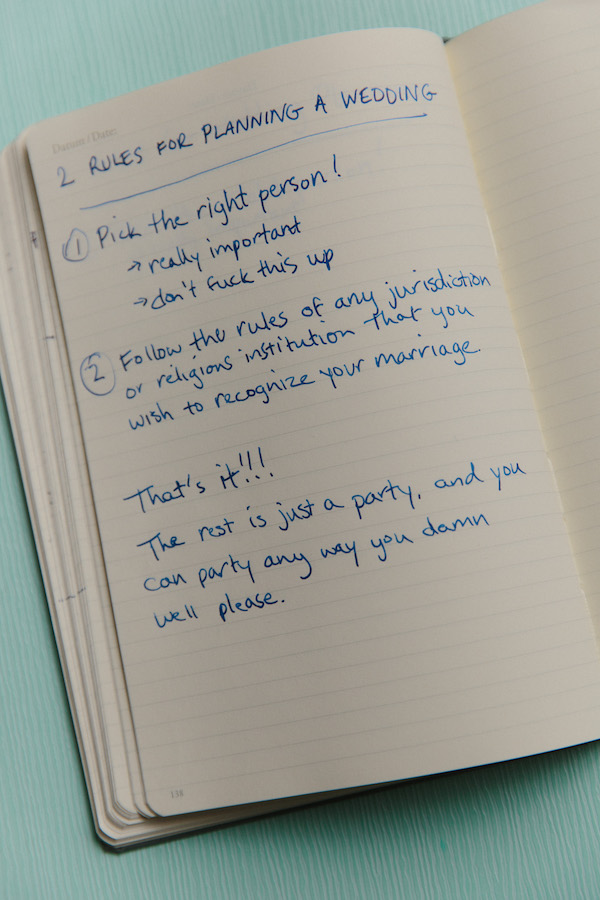 Datum / Date:
2 RULES FOR PLANNING A WEDDING
1 Pick the right person!
→ really important
→ don't fuck this up
2 Follow the rules of any jurisdiction
or religious institution that you
wish to recognize your marriage.
That's it!!!
The rest is just a party, and you
can party any way you damn
well please.